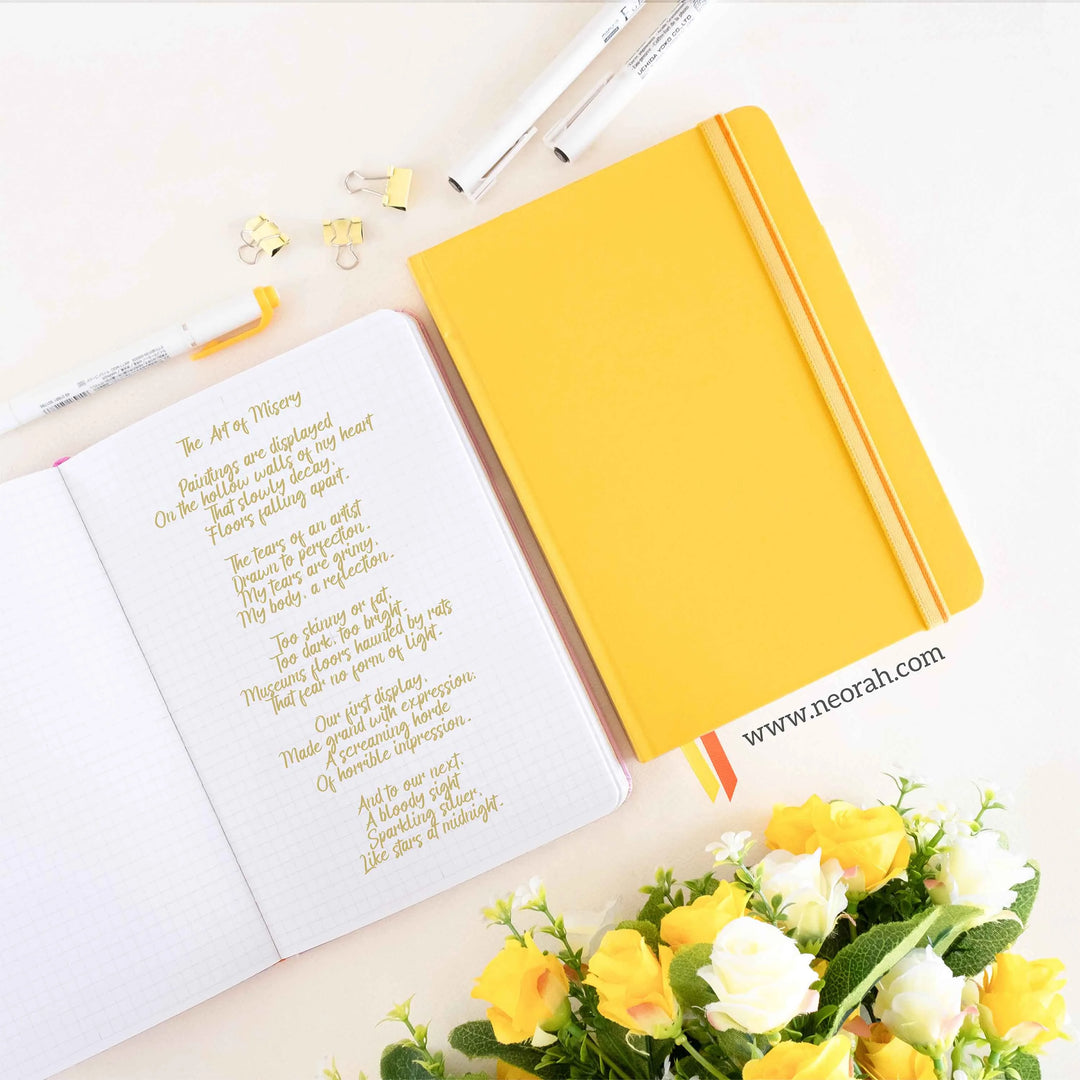 UCHIDA YOKO CO., LTD
The Art of Misery
Paintings are displayed
On the hollow walls of my heart
That slowly decay,
Floors falling apart.
The tears of an artist
Drawn to perfection.
My tears are grimy,
My body, a reflection.
Too skinny or fat,
Too dark, too bright.
Museums floors haunted by rats
That fear no form of light.
Our first display,
Made grand with expression:
A screaming horde
Of horrible impression.
And to our next,
A bloody sight
Sparkling silver,
Like stars at midnight.
www.neorah.com